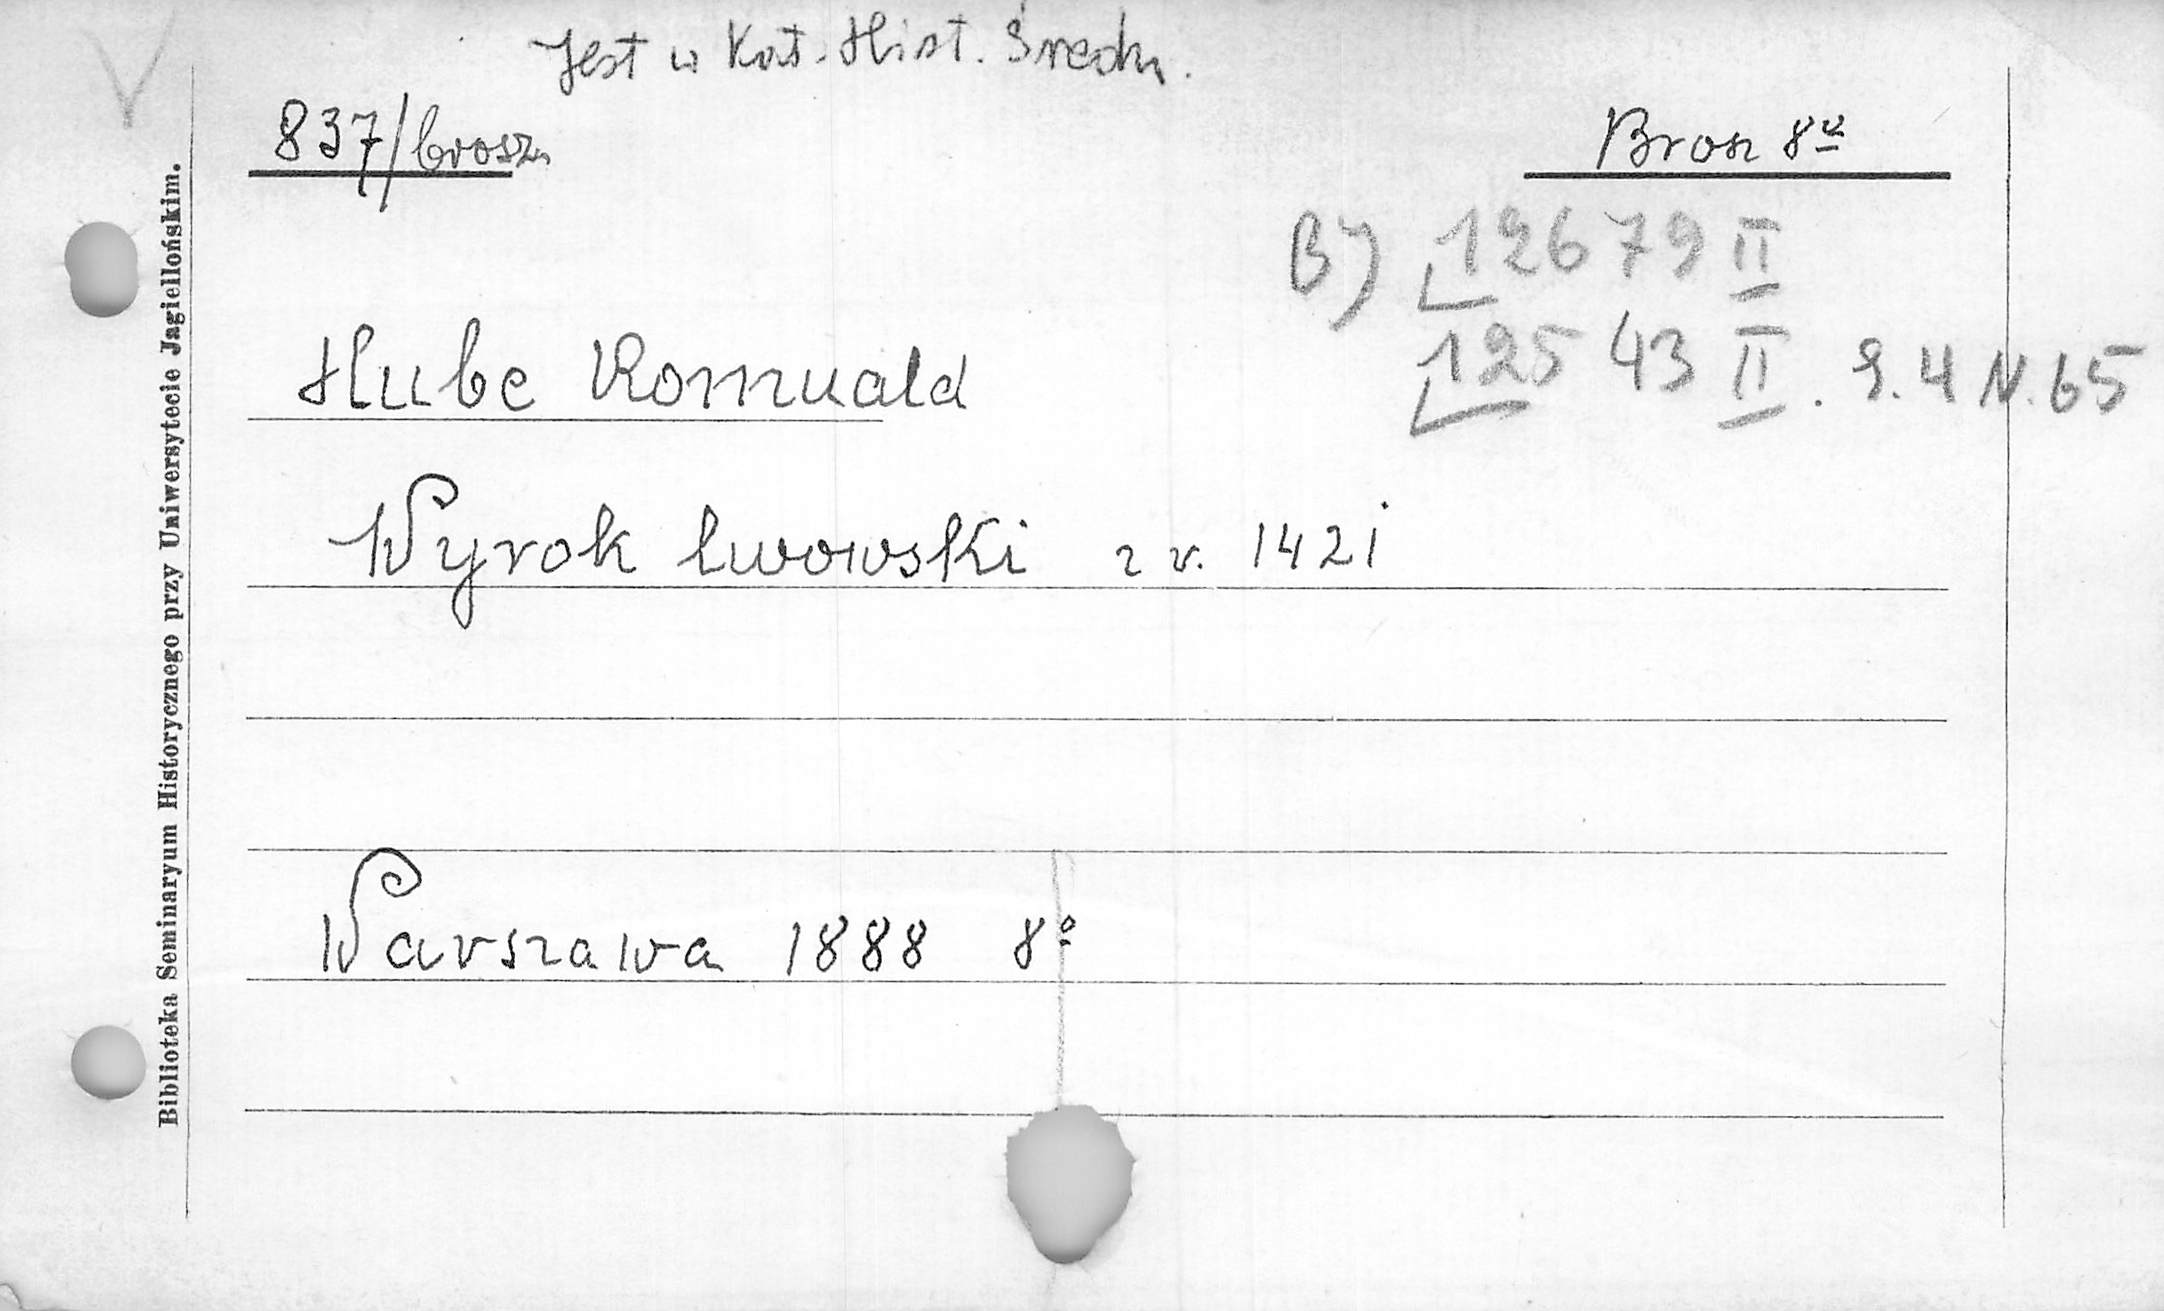 Jest w Kat. Hist. Średn.
837/brosz.
Brosz 8º
B) 12679 II
12543 II. S. 4 N. 65
Hube Romuald
Wyrok lwowski z r. 1421
Warszawa 1888 8º
Biblioteka Seminaryum Historycznego przy Uniwersytecie Jagiellońskim.